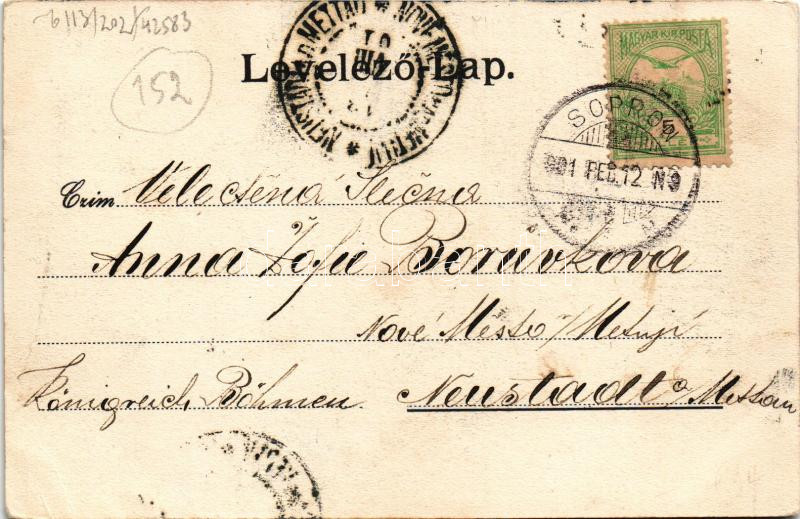 6/13/202/42583
152
Levelező-Lap.
MAGYAR KIR. POSTA
SOPRON
901 FEB. 12 N9
Czim Velectěná Slečna
Anna Žofie Borůvkova
Nové Mesto / Metují
Königreich Böhmen. Neustadt o/ Mettau